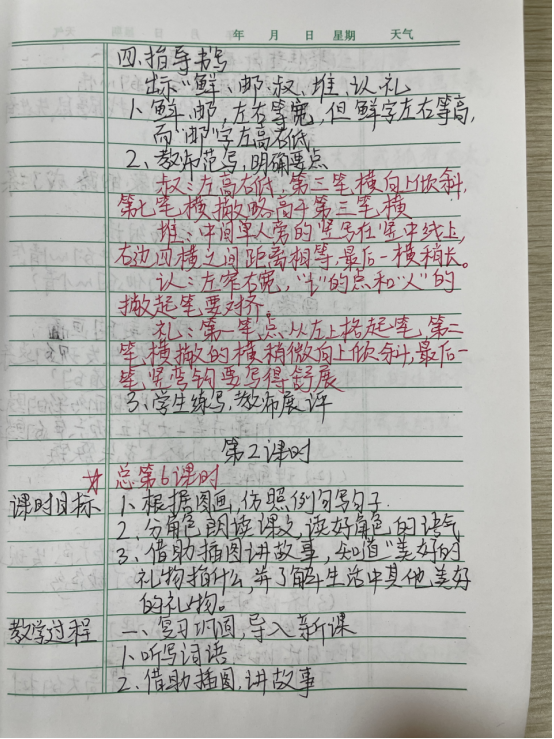 年 月 日 星期 天气
四、指导书写
出示"鲜、邮、叔、堆、认、礼
1、鲜、邮,左右等宽,但鲜字左右等高,
而"邮"字左高右低
2、教师范写,明确要点
叔:左高右低,第三笔横向上倾斜,
第七笔横撇略高于第三笔横
堆:中间单人旁的竖写在竖中线上,
右边四横之间距离相等,最后一横稍长。
认:左窄右宽,"讠"的点和"人"的
撇起笔要对齐。
礼:第一笔点从左上格起笔,第二
笔横撇的横稍微向上倾斜,最后一
笔竖弯钩要写得舒展
3、学生练写,教师展评
第2课时
总第6课时
课时目标 1、根据图画,仿照例句写句子.
2、分角色朗读课文,读好角色的语气
3、借助插图讲故事,知道"美好的
礼物指什么,并了解生活中其他美好
的礼物。
教学过程 一、复习巩固,导入新课
1、听写词语
2、借助插图,讲故事